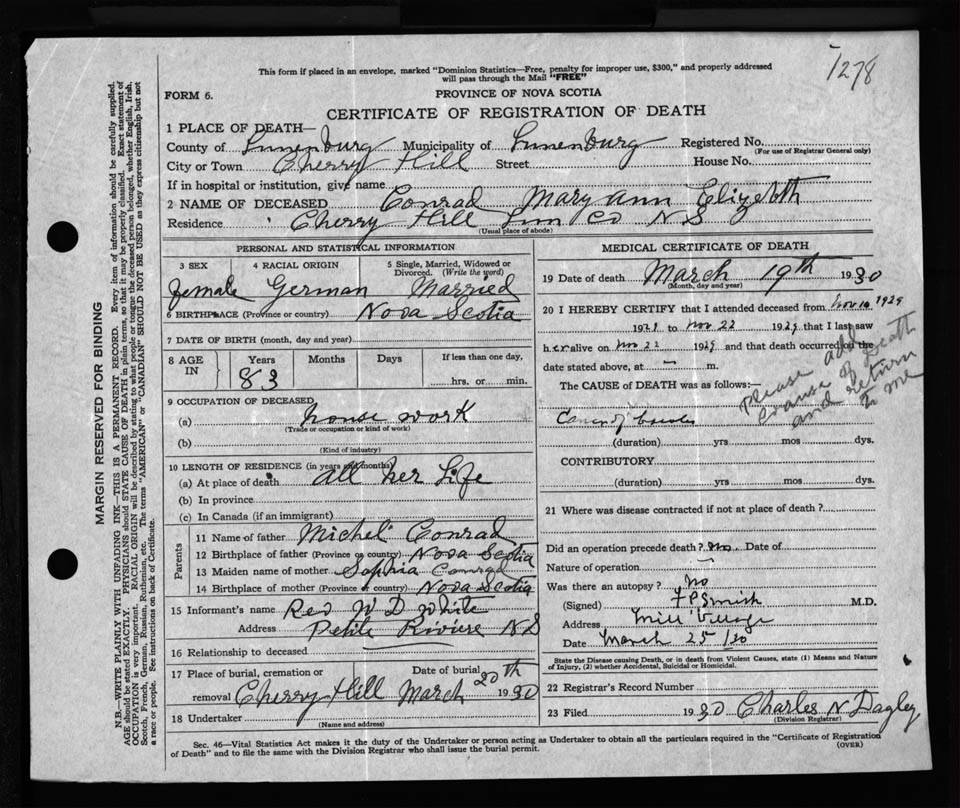 1278
This form if placed in an envelope, marked "Dominion Statistics—Free, penalty for improper use, $300," and properly addressed
will pass through the Mail "FREE"
FORM 6.
PROVINCE OF NOVA SCOTIA
CERTIFICATE OF REGISTRATION OF DEATH
1 PLACE OF DEATH—
County of Lunenburg Municipality of Lunenburg Registered No.
(For use of Registrar General only)
City or Town Cherry Hill Street House No.
If in hospital or institution, give name
2 NAME OF DECEASED Conrad Mary Ann Elizebth
Residence Cherry Hill Lun Co N S
(Usual place of abode)
PERSONAL AND STATISTICAL INFORMATION
3 SEX 4 RACIAL ORIGIN 5 Single, Married, Widowed or
Divorced. (Write the word)
female German Married
6 BIRTHPLACE (Province or country) Nova Scotia
7 DATE OF BIRTH (month, day and year)
8 AGE IN Years Months Days If less than one day,
83 hrs. or min.
9 OCCUPATION OF DECEASED
(a) house work
(Trade or occupation or kind of work)
(b)
(Kind of industry)
10 LENGTH OF RESIDENCE (in years and months)
(a) At place of death all her Life
(b) In province
(c) In Canada (if an immigrant)
Parents
11 Name of father Michel Conrad
12 Birthplace of father (Province or country) Nova Scotia
13 Maiden name of mother Sophia Conrad
14 Birthplace of mother (Province or country) Nova Scotia
15 Informant's name Rev W D White
Address Petite Riviere N S
16 Relationship to deceased
17 Place of burial, cremation or Date of burial 20th
removal Cherry Hill March 1930
18 Undertaker
(Name and address)
MEDICAL CERTIFICATE OF DEATH
19 Date of death March 19th 1930
(Month, day and year)
20 I HEREBY CERTIFY that I attended deceased from Nov 10 1929
192 to Nov 22 1929 that I last saw
her alive on Nov 22 1929 and that death occurred on the
date stated above, at — m.
The CAUSE of DEATH was as follows:
Please add
cause of Death
and return
to me
(duration) yrs mos dys.
CONTRIBUTORY
(duration) yrs mos dys.
21 Where was disease contracted if not at place of death?
Did an operation precede death? No. Date of
Nature of operation —
Was there an autopsy? no
(Signed) F P Smith M.D.
Address Mill Village
Date March 25/30
State the Disease causing Death, or in death from Violent Causes, state (1) Means and Nature
of Injury, (2) whether Accidental, Suicidal or Homicidal.
22 Registrar's Record Number
23 Filed 1930 Charles N Dagley
(Division Registrar)
Sec. 46—Vital Statistics Act makes it the duty of the Undertaker or person acting as Undertaker to obtain all the particulars required in the "Certificate of Registration
of Death" and to file the same with the Division Registrar who shall issue the burial permit.
(OVER)
MARGIN RESERVED FOR BINDING
N.B.—WRITE PLAINLY WITH UNFADING INK—THIS IS A PERMANENT RECORD. Every item of information should be carefully supplied.
AGE should be stated EXACTLY. PHYSICIANS should STATE CAUSE OF DEATH in plain terms, so that it may be properly classified. Exact statement of
OCCUPATION is very important. RACIAL ORIGIN will be described by stating to what people or tongue the deceased person belonged, whether English, Irish,
Scotch, French, German, Russian, Ruthenian, etc. The terms "AMERICAN" or "CANADIAN" SHOULD NOT BE USED as they express citizenship but not
a race or people. See instructions on back of Certificate.